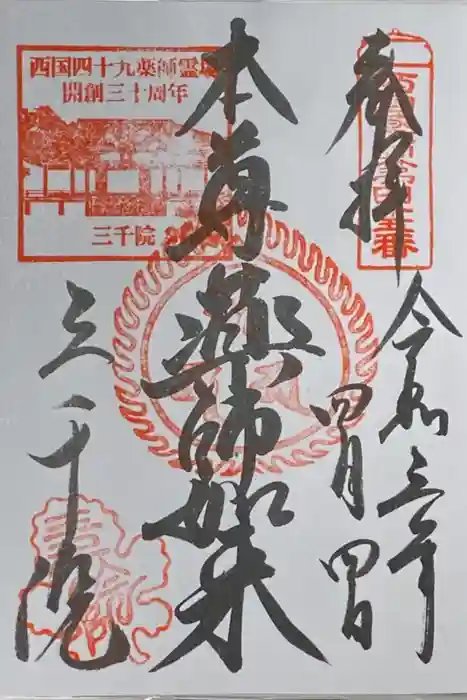 奉拝
令和三年
四月四日
本尊薬師如来
三千院
西国四十九薬師霊場
開創三十周年
三千院